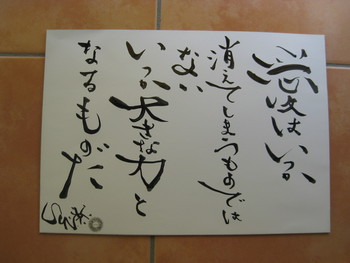 涙はいつか
消えてしまうものでは
ない
いつか大きな力と
なるものだ